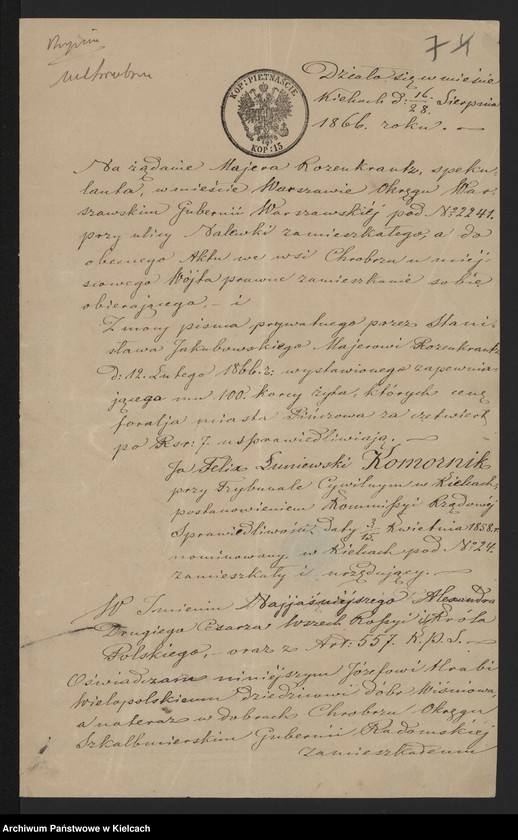 74
Działo się w mieście
KOP: PIĘTNAŚCIE
KOP: 15
Kielcach d: 16/28 Sierpnia
1866. roku. —
Na żądanie Majera Rozenkrantz, speku-
lanta, w mieście Warszawie Okręgu War-
szawskim Gubernii Warszawskiéj pod No 2241.
przy ulicy Nalewki zamieszkałego, a do
obecnego Aktu we wsi Chrobrzu u miej-
scowego Wójta prawne zamieszkanie sobie
obierającego. — i
Z mocy pisma prywatnego przez Stani-
sława Jakubowskiego Majerowi Rozenkrantz
d: 12. Lutego 1866. r: wystawionego zapewnia-
jącego mu 100. korcy żyta, których cenę
foralja miasta Pińczowa za czetwiert
po Rsr: 7. usprawiedliwiają. —
Ja Felix Łuniewski Komornik
przy Trybunale Cywilnym w Kielcach,
postanowieniem Kommissyi Rządowéj
Sprawiedliwości z daty 3/15 Kwietnia 1858. r.
nominowany w Kielcach pod No 24.
zamieszkały i urzędujący. —
W Imieniu Najjaśniejszego Alexandra
Drugiego Cesarza Wszech Rossyi Króla
Polskiego, — oraz z Art: 557. K. P. S. —
Oświadczam niniejszym Józefowi Hrabi
Wielopolskiemu Dziedzicowi dóbr Wiśniowa,
a nateraz w dobrach Chrobrzu Okręgu
Szkalbmierskim Gubernii Radomskiéj
zamieszkałemu
Archiwum Państwowe w Kielcach